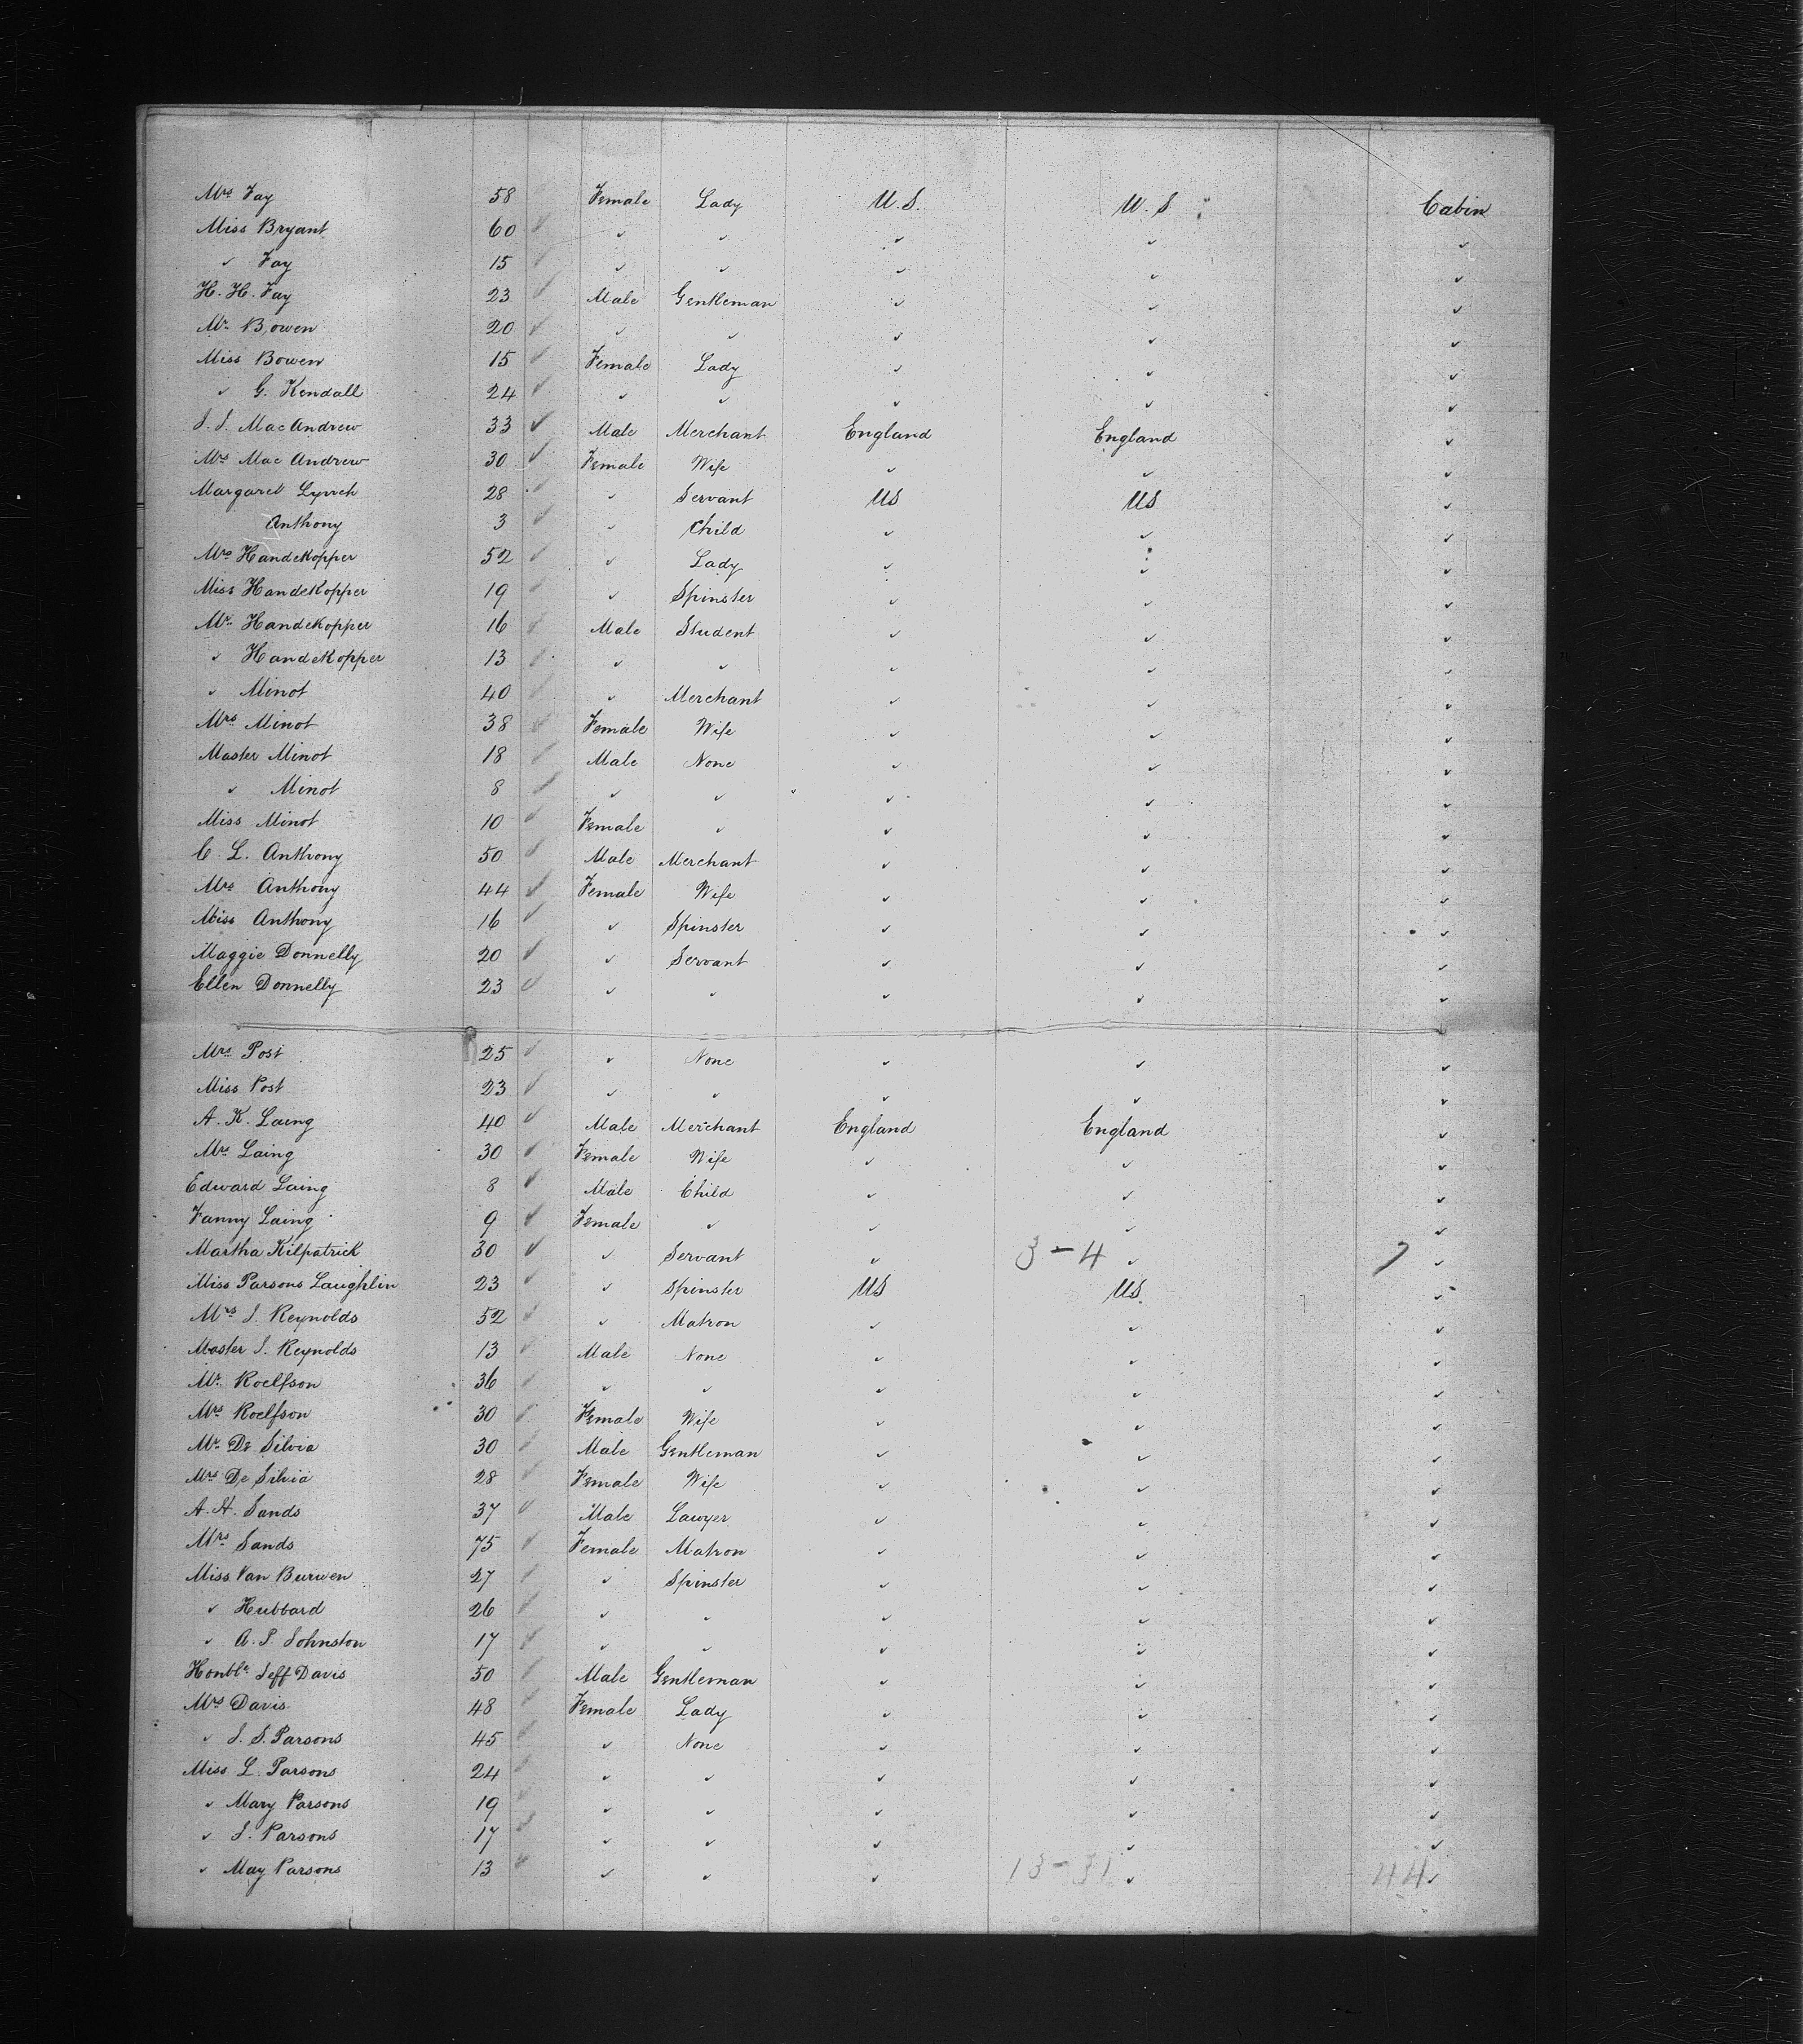 Mrs Fay 58 Female Lady U.S. U.S. Cabin
Miss Bryant 60 " " " " "
" Fay 15 " " " " "
H. H. Fay 23 Male Gentleman " " "
Mr Bowen 20 " " " " "
Miss Bowen 15 Female Lady " " "
" G. Kendall 24 " " " " "
J. J. MacAndrew 33 Male Merchant England England "
Mrs Mac Andrew 30 Female Wife " " "
Margaret Lynch 28 " Servant US US "
Anthony 3 " Child " " "
Mrs HandeKopper 52 " Lady " " "
Miss HandeKopper 19 " Spinster " " "
Mr HandeKopper 16 Male Student " " "
" HandeKopper 13 " " " " "
" Minot 40 " Merchant " " "
Mrs Minot 38 Female Wife " " "
Master Minot 18 Male None " " "
" Minot 8 " " " " "
Miss Minot 10 Female " " " "
C. L. Anthony 50 Male Merchant " " "
Mrs Anthony 44 Female Wife " " "
Miss Anthony 16 " Spinster " " "
Maggie Donnelly 20 " Servant " " "
Ellen Donnelly 23 " " " " "
Mrs Post 25 " None " " "
Miss Post 23 " " " " "
A. K. Laing 40 Male Merchant England England "
Mrs Laing 30 Female Wife " " "
Edward Laing 8 Male Child " " "
Fanny Laing 9 Female " " " "
Martha Kilpatrick 30 " Servant " 3-4 " 7 "
Miss Parsons Laughlin 23 " Spinster US US "
Mrs J. Reynolds 52 " Matron " " "
Master J. Reynolds 13 Male None " " "
Mr Roelfson 36 " " " " "
Mrs Roelfson 30 Female Wife " " "
Mr De Silvia 30 Male Gentleman " " "
Mrs De Silvia 28 Female Wife " " "
A. H. Sands 37 Male Lawyer " " "
Mrs Sands 75 Female Matron " " "
Miss Van Burwen 27 " Spinster " " "
" Hubbard 26 " " " " "
" A. P. Johnston 17 " " " " "
Honble Jeff Davis 50 Male Gentleman " " "
Mrs Davis 48 Female Lady " " "
" J. S. Parsons 45 " None " " "
Miss L. Parsons 24 " " " " "
" Mary Parsons 19 " " " " "
" J. Parsons 17 " " " " "
" May Parsons 13 " " " 13-31 " 44 "